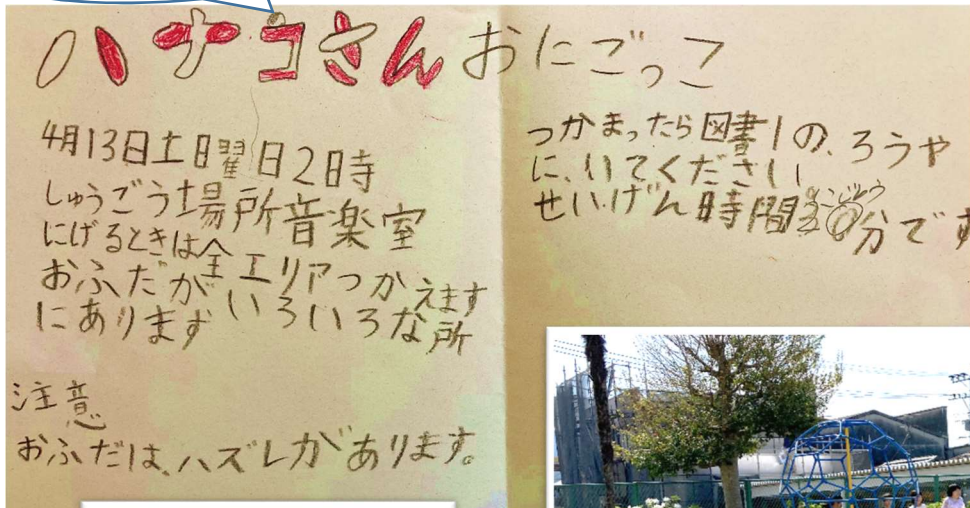 ハナコさんおにごっこ
4月13日土曜日2時
しゅうごう場所音楽室
にげるときは全エリアつかえます
おふだがいろいろな所
にあります
注意
おふだは、ハズレがあります。
つかまったら図書1の、ろうや
に、いてください
せいげん時間30分です